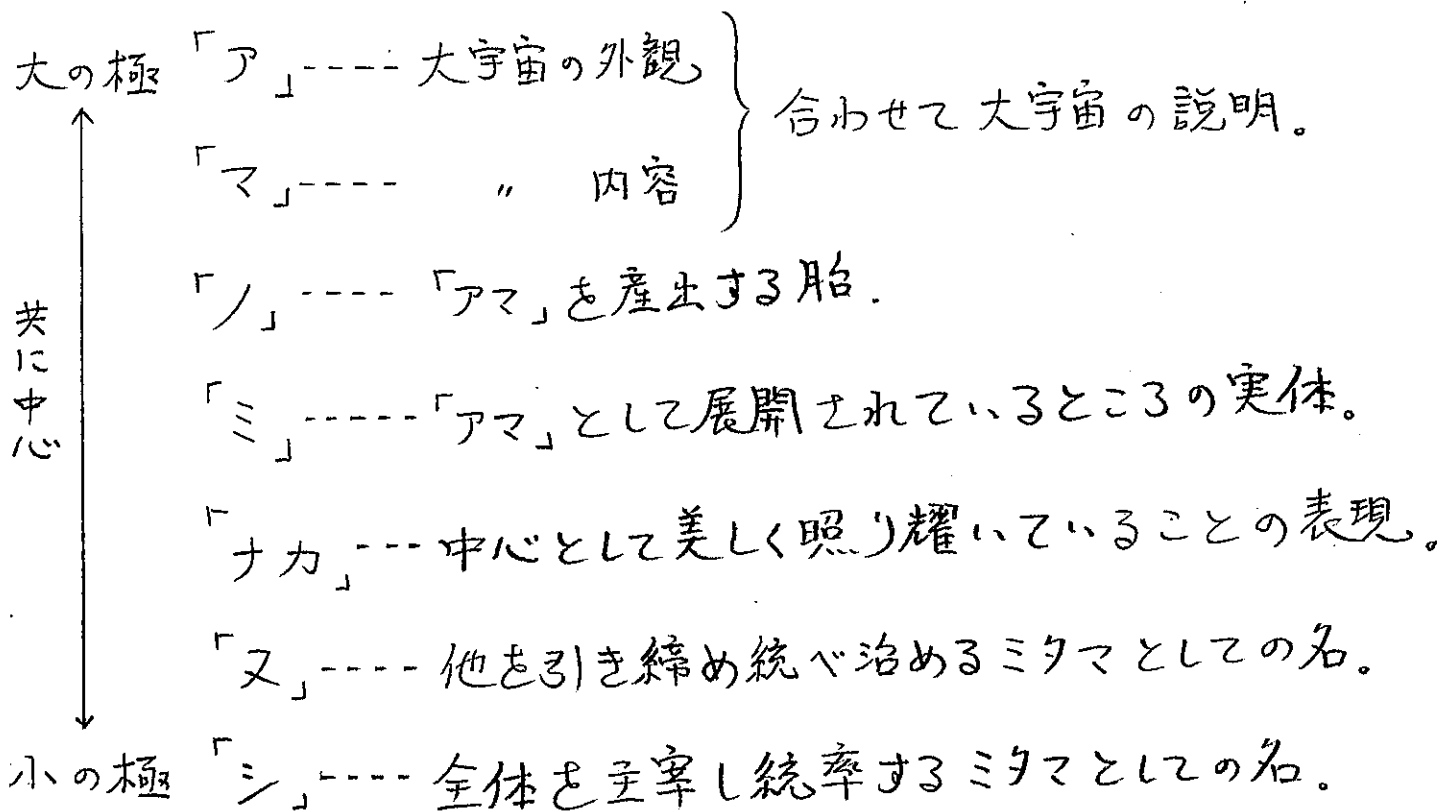 大の極 「ア」---- 大宇宙の外観
「マ」---- 〃 内容
合わせて大宇宙の説明。
「ノ」---- 「アマ」を産出する胎.
共に中心
「ミ」-----「アマ」として展開されているところの実体。
「ナカ」--- 中心として美しく照り耀いていることの表現。
「ヌ」---- 他を引き締め統べ治めるミタマとしての名。
小の極 「シ」---- 全体を主宰し統率するミタマとしての名。